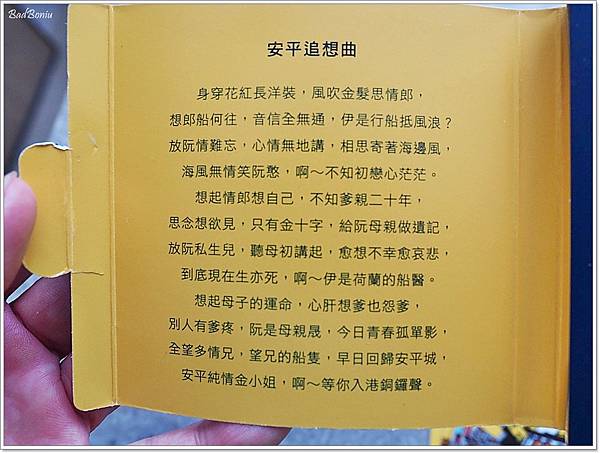 BadBoniu
安平追想曲
身穿花紅長洋裝，風吹金髮思情郎，
想郎船何往，音信全無通，伊是行船抵風浪？
放阮情難忘，心情無地講，相思寄著海邊風，
海風無情笑阮憨，啊～不知初戀心茫茫。
想起情郎想自己，不知爹親二十年，
思念想欲見，只有金十字，給阮母親做遺記，
放阮私生兒，聽母初講起，愈想不幸愈哀悲，
到底現在生亦死，啊～伊是荷蘭的船醫。
想起母子的運命，心肝想爹也怨爹，
別人有爹疼，阮是母親晟，今日青春孤單影，
全望多情兄，望兄的船隻，早日回歸安平城，
安平純情金小姐，啊～等你入港銅鑼聲。